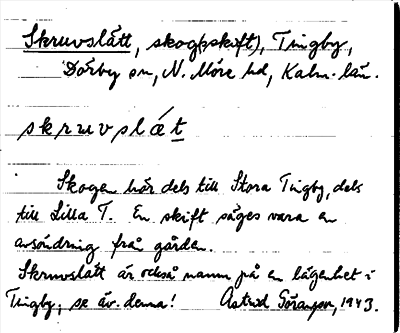 Skruvslätt, skog(sskift), Tingby,
Dörby sn, N. Möre hd, Kalm. län.
skruvslæ´t
Skogen hör dels till Stora Tingby, dels
till Lilla T. En skift säges vara en
avsöndring från gården.
Skruvslätt är också namn på en lägenhet i
Tingby, se äv. denna! Astrid Göransson, 1943.